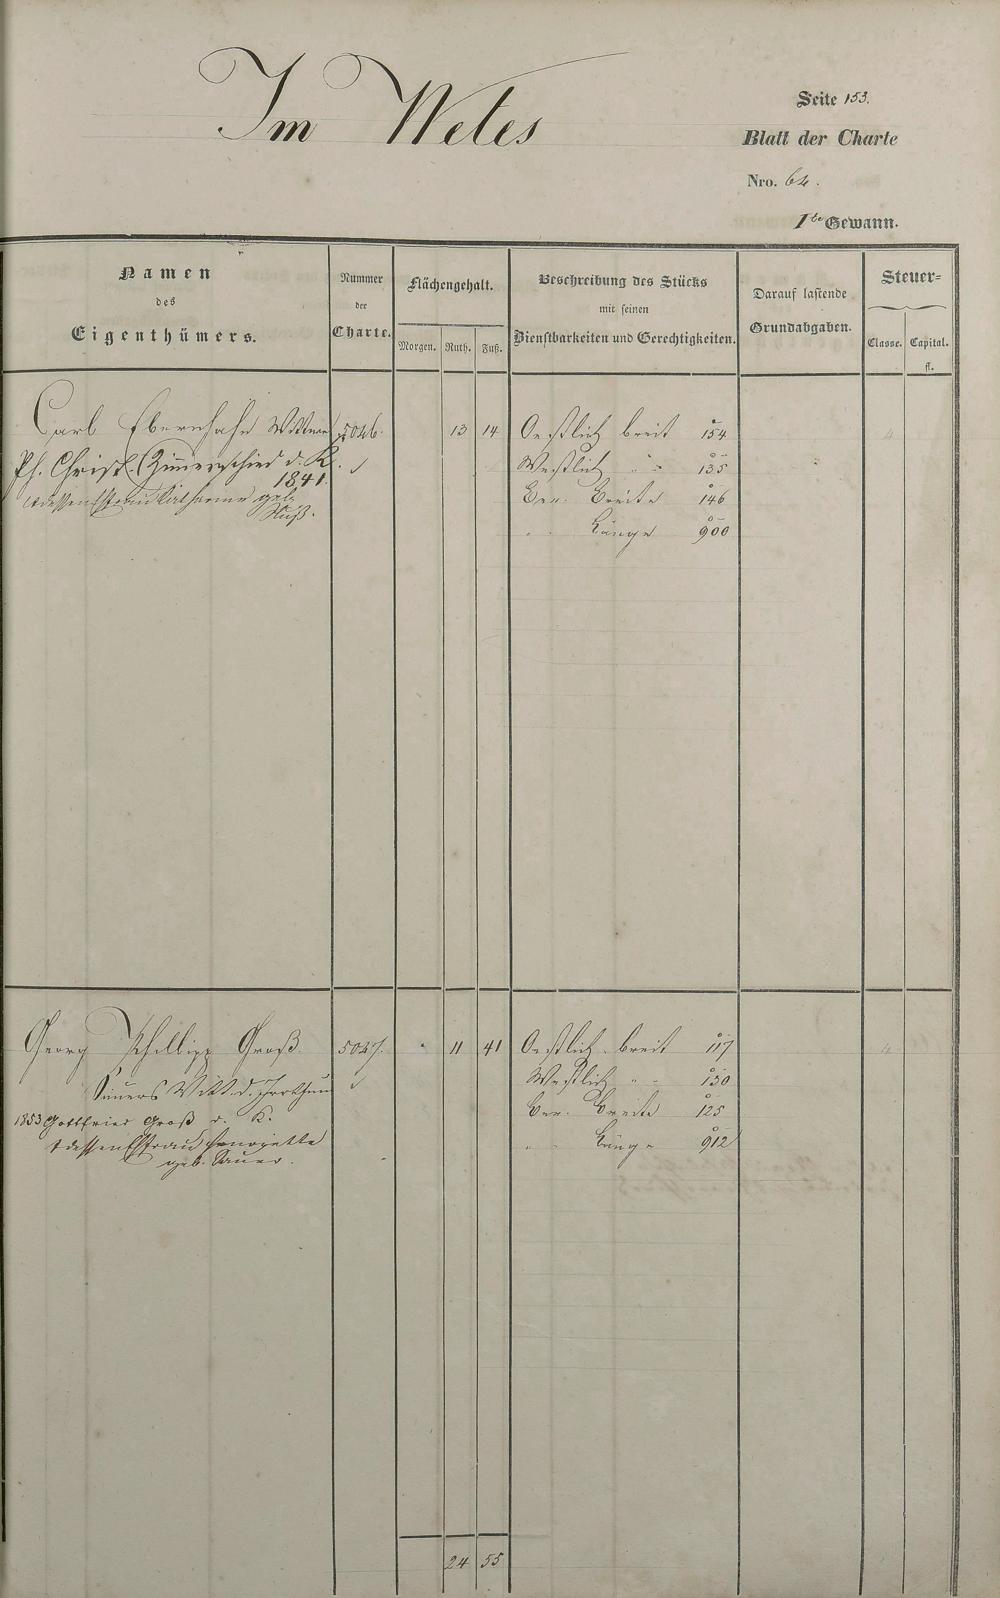 Im Wetes
Seite 153.
Blatt der Charte
Nro. 64.
1te Gewann.
Namen
des
Eigenthümers.
Nummer
der
Charte.
Flächengehalt.
Morgen. Ruth. Fuß.
Beschreibung des Stücks
mit seinen
Dienstbarkeiten und Gerechtigkeiten.
Darauf lastende
Grundabgaben.
Steuer=
Classe. Capital.
fl.
Carl Ebernhahn Wittwe 5046. 13 14 Oestlich breit 154
Ph. Christ. Zimmerschied d. K. Westlich " " 135
1841.
&dessen Ehefrau Katharine geb. Ber. Breite 146
" Länge 900
Georg Phillipp Groß 5047. " 11 41 Oestlich breit 117
Witt. d. Westlich " " 130
1853 Gottfried Groß d. K. Ber. Breite 125
&dessen Ehefrau " Länge 912
geb. Sauer.
24 55